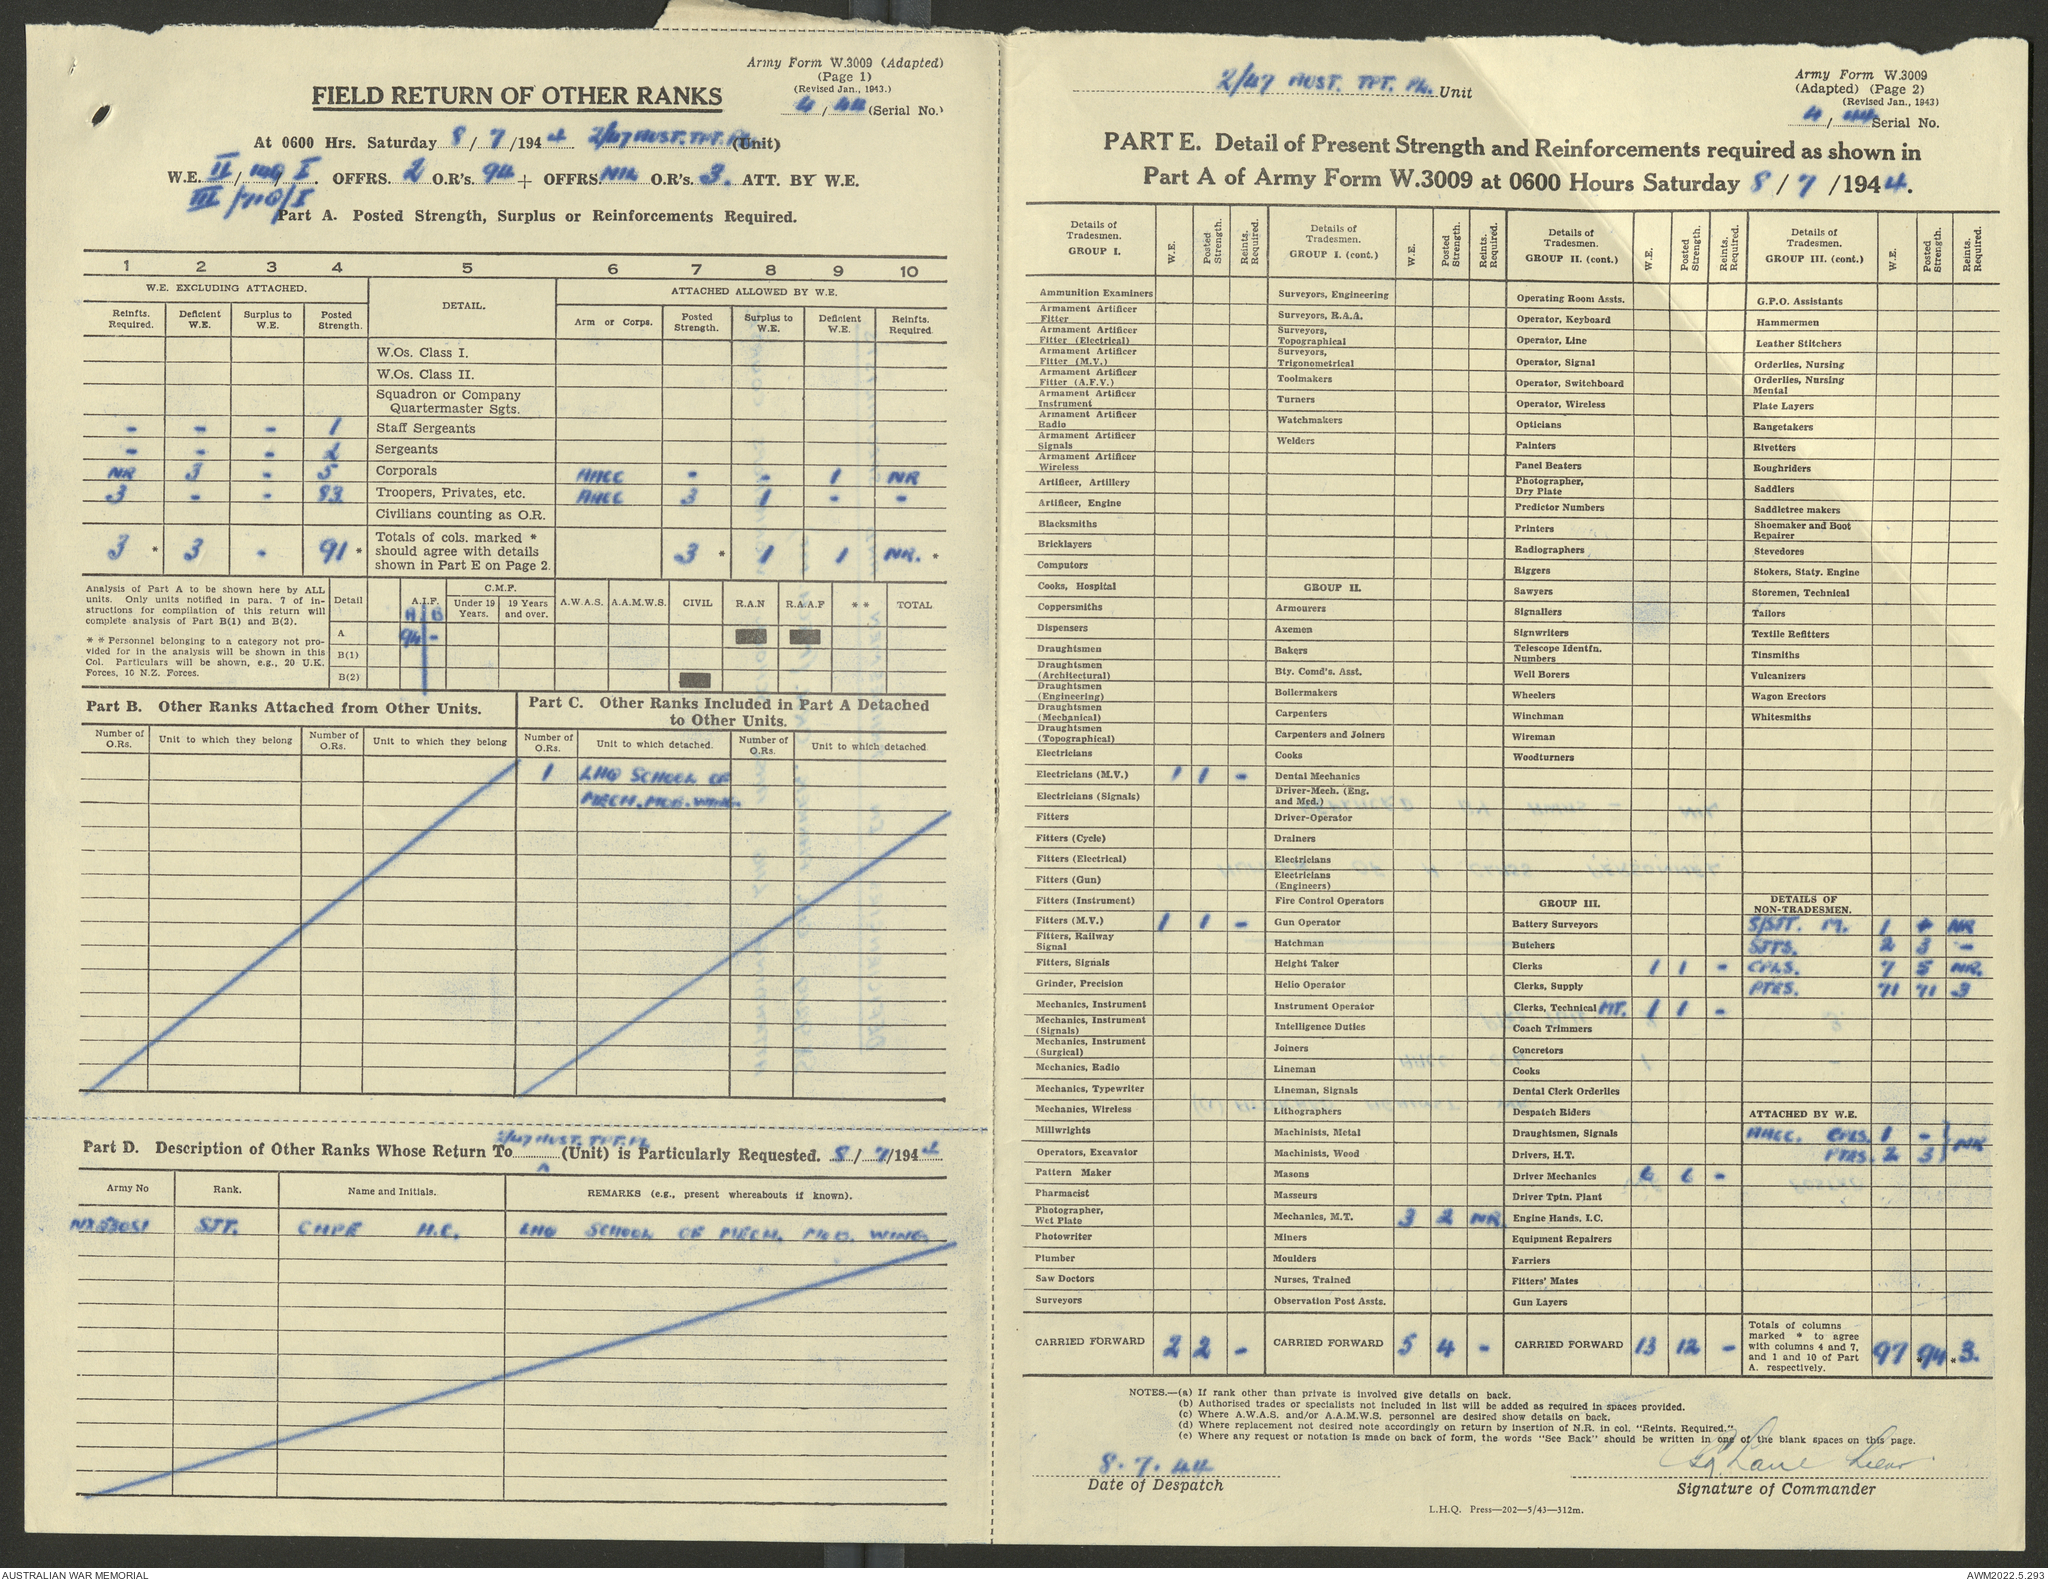 Army Form W.3009 (Adapted)
(Page 1)
(Revised Jan., 1943.)
4 / 44 (Serial No.)
FIELD RETURN OF OTHER RANKS
At 0600 Hrs. Saturday 8 / 7 /1944 2/47 AUST. TPT. PL. (Unit)
W.E. II / 149 / I. OFFRS. 2 O.R's. 94 + OFFRS. NIL O.R's. 3. ATT. BY W.E.
III /710/I
Part A. Posted Strength, Surplus or Reinforcements Required.
1 2 3 4 5 6 7 8 9 10
W.E. EXCLUDING ATTACHED. DETAIL. ATTACHED ALLOWED BY W.E.
Reinfts. Required. Deficient W.E. Surplus to W.E. Posted Strength. Arm or Corps. Posted Strength. Surplus to W.E. Deficient W.E. Reinfts. Required.
W.Os. Class I.
W.Os. Class II.
Squadron or Company Quartermaster Sgts.
- - - 1 Staff Sergeants
- - - 2 Sergeants
NR 3 - 5 Corporals AACC - - 1 NR
3 - - 83 Troopers, Privates, etc. AACC 3 1 - -
Civilians counting as O.R.
3 * 3 - 91 * Totals of cols. marked * should agree with details shown in Part E on Page 2. 3 * 1 1 NR. *
Analysis of Part A to be shown here by ALL units. Only units notified in para. 7 of instructions for compilation of this return will complete analysis of Part B(1) and B(2).
* * Personnel belonging to a category not provided for in the analysis will be shown in this Col. Particulars will be shown, e.g., 20 U.K. Forces, 10 N.Z. Forces.
Detail A.I.F. C.M.F. Under 19 Years. 19 Years and over. A.W.A.S. A.A.M.W.S. CIVIL R.A.N R.A.A.F * * TOTAL
A B
A 94 -
B(1)
B(2)
Part B. Other Ranks Attached from Other Units.
Part C. Other Ranks Included in Part A Detached to Other Units.
Number of O.Rs. Unit to which they belong Number of O.Rs. Unit to which they belong Number of O.Rs. Unit to which detached. Number of O.Rs. Unit to which detached
1 LHQ SCHOOL OF
MECH. MOB. WING.
2/47 AUST. TPT. PL
Part D. Description of Other Ranks Whose Return To (Unit) is Particularly Requested. 8 / 7 /1944
Army No Rank. Name and Initials. REMARKS (e.g., present whereabouts if known).
SJT. CAPE H.C. LHQ SCHOOL OF MECH. MOB. WING.
2/47 AUST. TPT. PL. Unit
Army Form W.3009
(Adapted) (Page 2)
(Revised Jan., 1943)
4 / 44 Serial No.
PART E. Detail of Present Strength and Reinforcements required as shown in
Part A of Army Form W.3009 at 0600 Hours Saturday 8 / 7 /1944.
Details of Tradesmen. GROUP I. W.E. Posted Strength. Reints. Required.
Ammunition Examiners
Armament Artificer Fitter
Armament Artificer Fitter (Electrical)
Armament Artificer Fitter (M.V.)
Armament Artificer Fitter (A.F.V.)
Armament Artificer Instrument
Armament Artificer Radio
Armament Artificer Signals
Armament Artificer Wireless
Artificer, Artillery
Artificer, Engine
Blacksmiths
Bricklayers
Computors
Cooks, Hospital
Coppersmiths
Dispensers
Draughtsmen
Draughtsmen (Architectural)
Draughtsmen (Engineering)
Draughtsmen (Mechanical)
Draughtsmen (Topographical)
Electricians
Electricians (M.V.) 1 1 -
Electricians (Signals)
Fitters
Fitters (Cycle)
Fitters (Electrical)
Fitters (Gun)
Fitters (Instrument)
Fitters (M.V.) 1 1 -
Fitters, Railway Signal
Fitters, Signals
Grinder, Precision
Mechanics, Instrument
Mechanics, Instrument (Signals)
Mechanics, Instrument (Surgical)
Mechanics, Radio
Mechanics, Typewriter
Mechanics, Wireless
Millwrights
Operators, Excavator
Pattern Maker
Pharmacist
Photographer, Wet Plate
Photowriter
Plumber
Saw Doctors
Surveyors
CARRIED FORWARD 2 2 -
Details of Tradesmen. GROUP I. (cont.) W.E. Posted Strength. Reints. Required.
Surveyors, Engineering
Surveyors, R.A.A.
Surveyors, Topographical
Surveyors, Trigonometrical
Toolmakers
Turners
Watchmakers
Welders
GROUP II.
Armourers
Axemen
Bakers
Bty. Comd's. Asst.
Boilermakers
Carpenters
Carpenters and Joiners
Cooks
Dental Mechanics
Driver-Mech. (Eng. and Med.)
Driver-Operator
Drainers
Electricians
Electricians (Engineers)
Fire Control Operators
Gun Operator
Hatchman
Height Taker
Helio Operator
Instrument Operator
Intelligence Duties
Joiners
Lineman
Lineman, Signals
Lithographers
Machinists, Metal
Machinists, Wood
Masons
Masseurs
Mechanics, M.T. 3 2 NR
Miners
Moulders
Nurses, Trained
Observation Post Assts.
CARRIED FORWARD 5 4 -
Details of Tradesmen. GROUP II. (cont.) W.E. Posted Strength. Reints. Required.
Operating Room Assts.
Operator, Keyboard
Operator, Line
Operator, Signal
Operator, Switchboard
Operator, Wireless
Opticians
Painters
Panel Beaters
Photographer, Dry Plate
Predictor Numbers
Printers
Radiographers
Riggers
Sawyers
Signallers
Signwriters
Telescope Identfn. Numbers
Well Borers
Wheelers
Winchman
Wireman
Woodturners
GROUP III.
Battery Surveyors
Butchers
Clerks 1 1 -
Clerks, Supply
Clerks, Technical MT. 1 1 -
Coach Trimmers
Concretors
Cooks
Dental Clerk Orderlies
Despatch Riders
Draughtsmen, Signals
Drivers, H.T.
Driver Mechanics 6 6 -
Driver Tptn. Plant
Engine Hands, I.C.
Equipment Repairers
Farriers
Fitters' Mates
Gun Layers
CARRIED FORWARD 13 12 -
Details of Tradesmen. GROUP III. (cont.) W.E. Posted Strength. Reints. Required.
G.P.O. Assistants
Hammermen
Leather Stitchers
Orderlies, Nursing
Orderlies, Nursing Mental
Plate Layers
Rangetakers
Rivetters
Roughriders
Saddlers
Saddletree makers
Shoemaker and Boot Repairer
Stevedores
Stokers, Staty. Engine
Storemen, Technical
Tailors
Textile Refitters
Tinsmiths
Vulcanizers
Wagon Erectors
Whitesmiths
DETAILS OF NON-TRADESMEN.
S/SJT. M. 1 NR
SJTS. 2 3 -
CPLS. 7 5 NR.
PTES. 71 71 3
ATTACHED BY W.E.
AACC. CPLS. 1 - NR
PTES. 2 3
Totals of columns marked * to agree with columns 4 and 7, and 1 and 10 of Part A. respectively. 97 *94 *3.
NOTES.—(a) If rank other than private is involved give details on back.
(b) Authorised trades or specialists not included in list will be added as required in spaces provided.
(c) Where A.W.A.S. and/or A.A.M.W.S. personnel are desired show details on back.
(d) Where replacement not desired note accordingly on return by insertion of N.R. in col. "Reints. Required."
(e) Where any request or notation is made on back of form, the words "See Back" should be written in one of the blank spaces on this page.
8. 7. 44
Date of Despatch
Signature of Commander
L.H.Q. Press—202—5/43—312m.
AUSTRALIAN WAR MEMORIAL
AWM2022.5.293